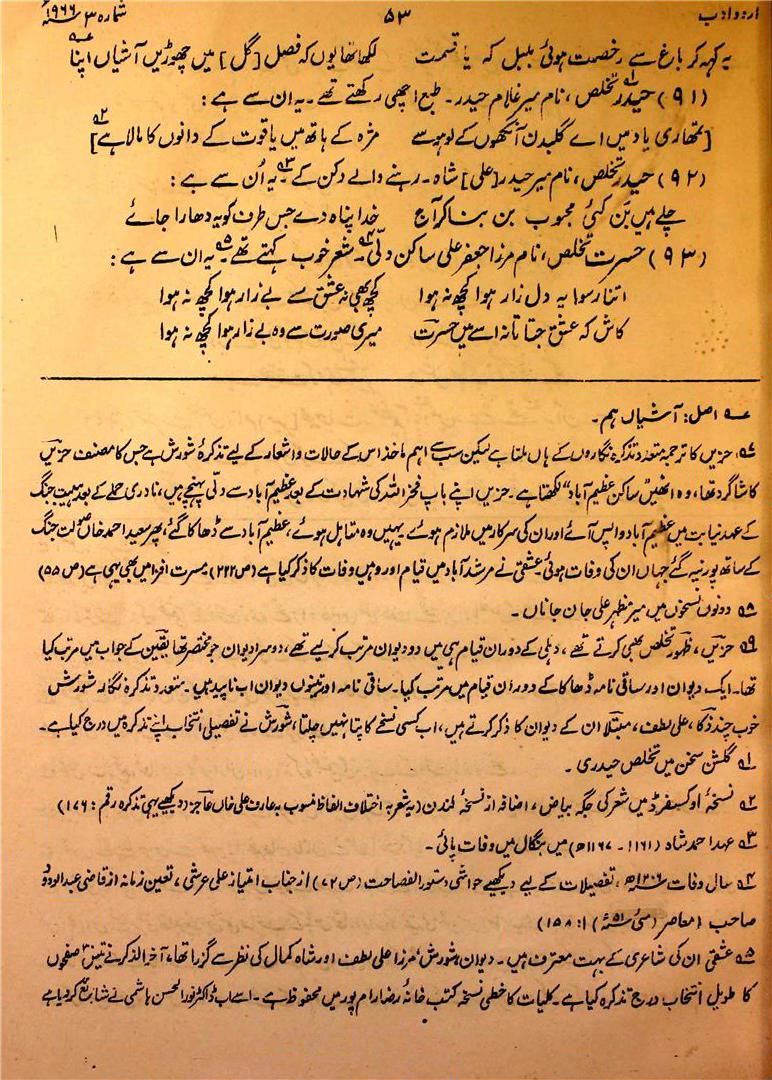 اردو ادب ۵۳ شمارہ ۳ ۱۹۶۶ء
یہ کہہ کر باغ سے رخصت ہوئی بلبل کہ یا قسمت لکھا تھا یوں کہ فصل [گل] میں چھوڑیں آشیاں اپنا
(۹۱) حیدر تخلص، نام میر غلام حیدر۔ طبع اچھی رکھتے تھے۔ یہ ان سے ہے:
[تمھاری یاد میں اے گلبدن آنکھوں کے لوہو سے مژہ کے ہاتھ میں یاقوت کے دانوں کا مالا ہے]
(۹۲) حیدر تخلص، نام میر حیدر [علی] شاہ۔ رہنے والے دکن کے۔ یہ اُن سے ہے:
چلے ہیں بَن کئی محبوب بن بنا کر آج خدا پناہ دے جس طرف کو یہ دھارا جائے
(۹۳) حسرت تخلص، نام مرزا جعفر علی ساکن دلّی۔ شعر خوب کہتے تھے۔ یہ ان سے ہے:
اتنا رسوا یہ دل زار ہوا کچھ نہ ہوا کچھ بھی نہ عشق سے بے زار ہوا کچھ نہ ہوا
کاش کہ عشق جتاتا نہ اسے میں حسرت میری صورت سے وہ بے زار ہوا کچھ نہ ہوا
اصل: آشیاں ہم۔
۸۷ حزیں کا ترجمہ متعدد تذکرہ نگاروں کے ہاں ملتا ہے لیکن سب سے اہم ماخذ اس کے حالات و اشعار کے لیے تذکرۂ شورش ہے جس کا مصنف حزیں
کا شاگرد تھا، وہ انھیں "ساکن عظیم آباد" لکھتا ہے۔ حزیں اپنے باپ فخر اللہ کی شہادت کے بعد عظیم آباد سے دلّی پہنچے ہیں، نادری حملے کے بعد ہیبت جنگ
کے عہد نیابت میں عظیم آباد واپس آئے اور ان کی سرکار میں ملازم ہوئے یہیں وہ متاہل ہوئے، عظیم آباد سے ڈھاکا گئے، پھر سعید احمد خاں صولت جنگ
کے ساتھ پورنیہ گئے جہاں ان کی وفات ہوئی۔ عشقی نے مرشد آباد میں قیام اور وہیں وفات کا ذکر کیا ہے (ص ۲۲۲) مسرت افزا میں بھی یہی ہے (ص ۵۵)
۸۸ دونوں نسخوں میں میر مظہر علی جان جاناں۔
۸۹ حزیں، ظہور تخلص بھی کرتے تھے، دہلی کے دوران قیام ہی میں دو دیوان مرتب کر لیے تھے، دوسرا دیوان جو مختصر تھا یقین کے جواب میں مرتب کیا
تھا۔ ایک دیوان اور ساقی نامہ ڈھاکا کے دوران قیام میں مرتب کیا۔ ساقی نامہ اور تینوں دیوان اب ناپید ہیں۔ متعدد تذکرہ نگار شورش
خوب چند ذکا، علی لطف، مبتلا ان کے دیوان کا ذکر کرتے ہیں، اب کسی نسخے کا پتا نہیں چلتا، شورش نے تفصیلی انتخاب اپنے تذکرہ میں درج کیا ہے۔
۹۱ گلشن سخن میں تخلص حیدری۔
۹۲ نسخۂ اوکسیفرڈ میں شعر کی جگہ بیاض، اضافہ از نسخۂ لندن (یہ شعر بہ اختلاف الفاظ منسوب بہ عارف علی خاں عاجز دیکھیے یہی تذکرہ رقم: ۱۷۶)
۹۳ عہد احمد شاہ (۱۱۶۱۔۱۱۶۷ھ) میں بنگال میں وفات پائی۔
۹۴ سال وفات ۱۲۰۶ھ، تفصیلات کے لیے دیکھیے حواشی دستور الفصاحت (ص ۷۲) از جناب امتیاز علی عرشی، تعین زمانہ از قاضی عبدالودود
صاحب (معاصر (مئی ۵۱ء) ۱: ۱۵۸)
۹۵ عشقی ان کی شاعری کے بہت معترف ہیں۔ دیوان شورش، مرزا علی لطف اور شاہ کمال کی نظر سے گزرا تھا، آخر الذکر نے تین صفحوں
کا طویل انتخاب درج تذکرہ کیا ہے۔ کلیات کا خطی نسخہ کتب خانۂ رضا رام پور میں محفوظ ہے۔ اسے اب ڈاکٹر نور الحسن ہاشمی نے شایع کر دیا ہے